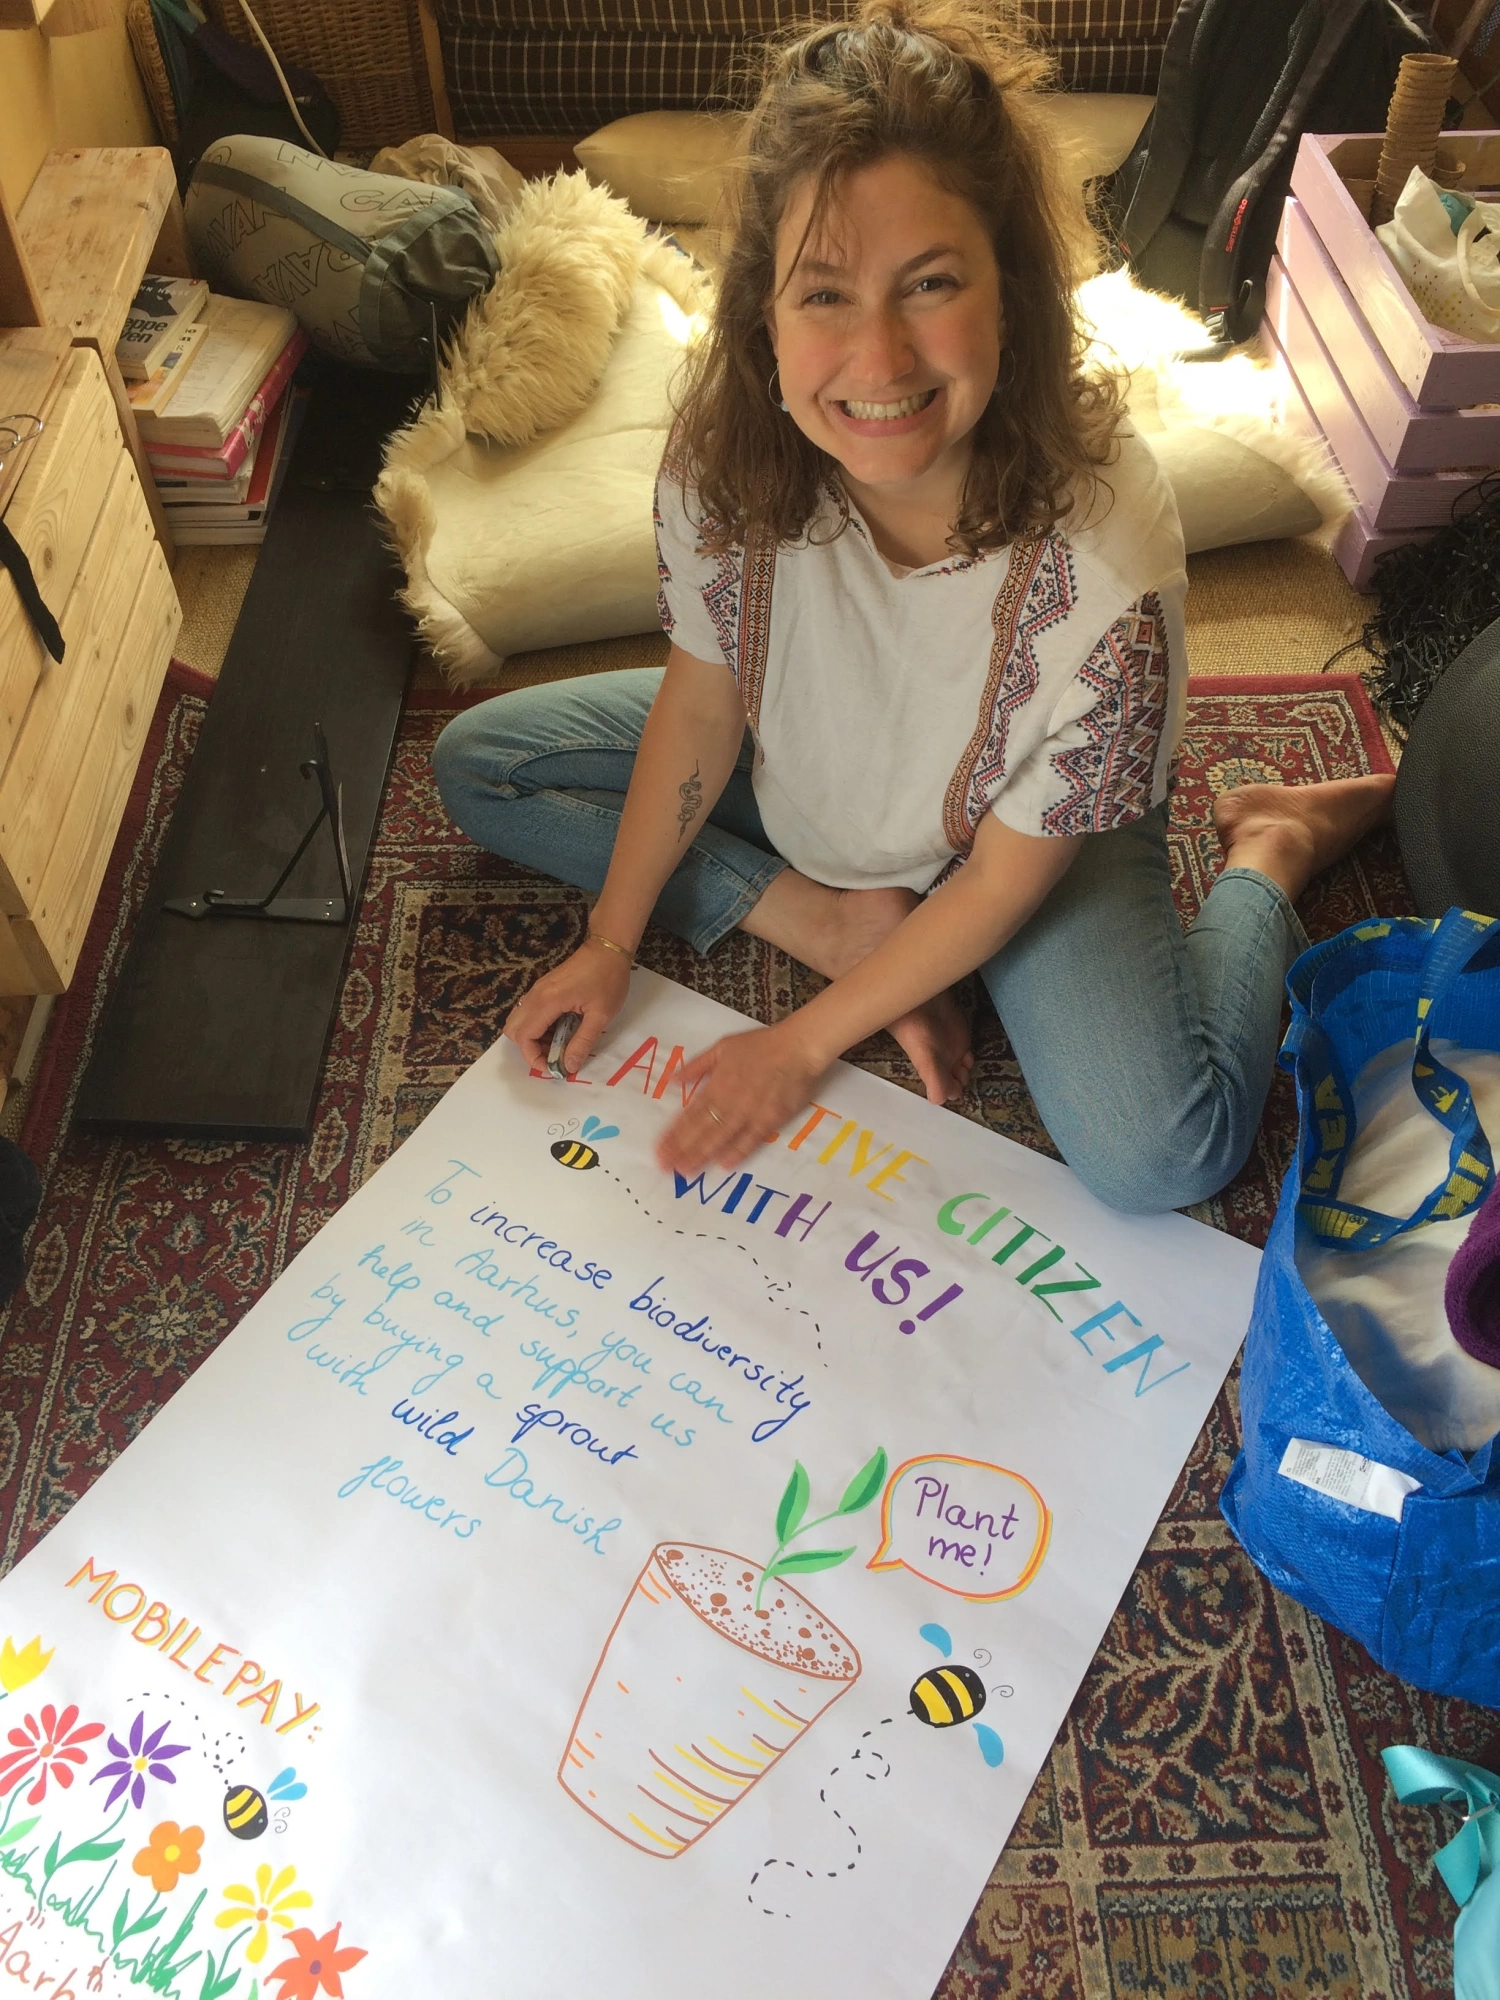 AN ACTIVE CITIZEN
WITH US!
To increase biodiversity
in Aarhus, you can
help and support us
by buying a sprout
with wild Danish
flowers
Plant
me!
MOBILEPAY:
Aarh
IKEA
samsonite